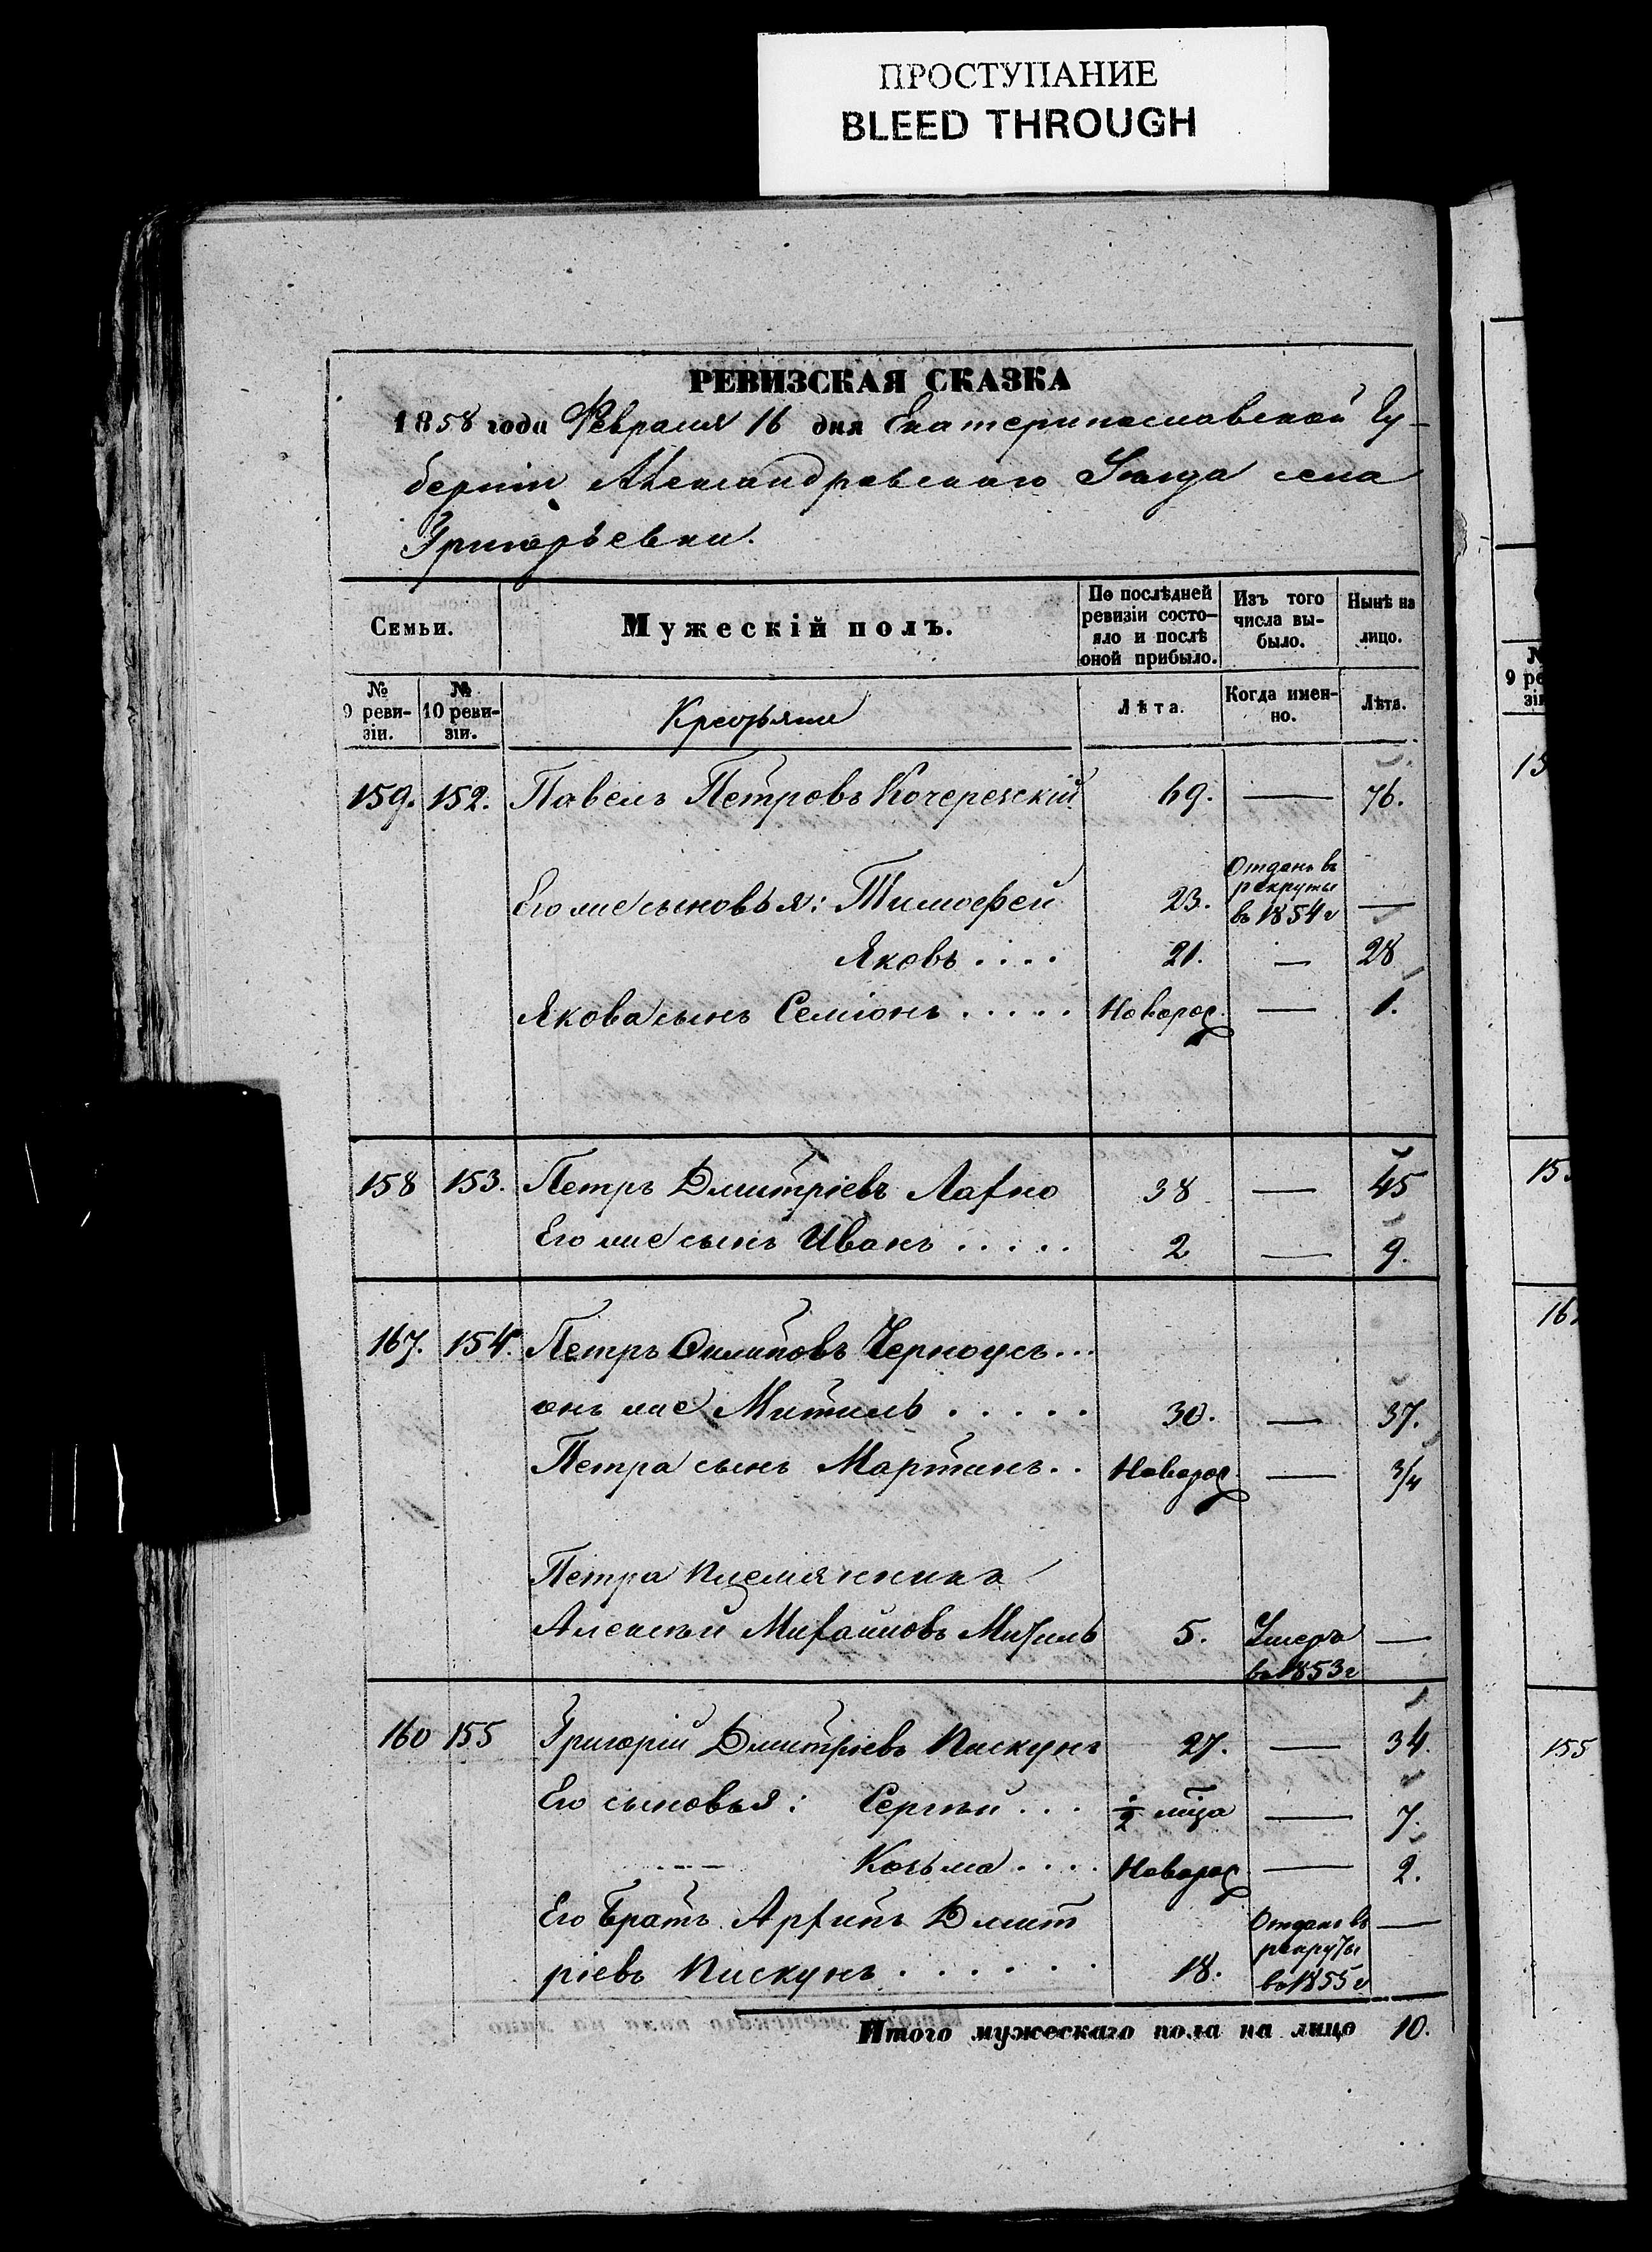 ПРОСТУПАНИЕ
BLEED THROUGH
РЕВИЗСКАЯ СКАЗКА
1858 года Февраля 16 дня Екатеринославской Гу-
берніи Александровскаго Уезда села
Григорьевки.
Семьи.
Мужескій полъ.
По послѣдней ревизіи состо-яло и послѣ оной прибыло.
Изъ того числа вы-было.
Нынѣ на лицо.
№ 9 реви-зіи.
№ 10 реви-зіи.
Крестьяне
Лѣта.
Когда имен-но.
Лѣта.
159. 152. Павелъ Петровъ 69. — 76.
Его же сыновья: Тимофей 23. Отданъ въ рекруты въ 1854 г —
Яковъ .... 21. — 28
Якова сынъ Семіонъ ..... Новорож — 1.
158 153. Петръ Дмитріевъ Лахно 38 — 45
Его же сынъ Иванъ ..... 2 — 9.
167. 154. Петръ Филиповъ Черноусъ...
онъ же Митиль ..... 30. — 37.
Петра сынъ Мартинъ.. Новорож — 3/4
Петра племянникъ
Алексѣй Михайловъ Митиль 5. Умеръ въ 1853 г —
160 155 Григорій Дмитріевъ Пискунъ 27. — 34.
Его сыновья: Сергѣй ... 1/2 мца — 7.
--- Козьма .... Новорож — 2.
Его Братъ Архипъ Дмит
ріевъ Пискунъ ...... 18. Отданъ въ рекруты въ 1855 г —
Итого мужескаго пола на лицо 10.
№
9 ре
зі
15
15
16
155